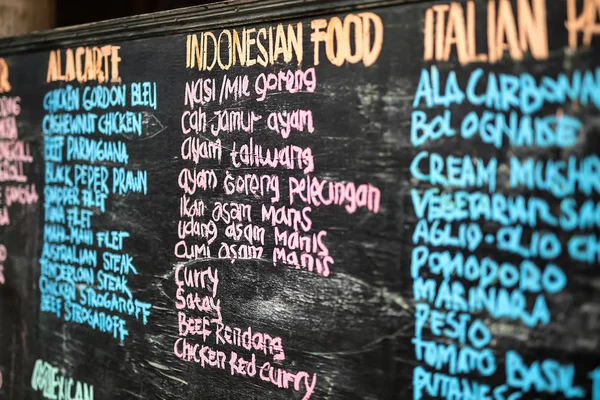 ALACARTE
CHICKEN GORDON BLEU
CASHEWNUT CHICKEN
BEEF PARMIGIANA
BLACK PEPER PRAWN
SNAPPER FILET
TUNA FILET
MAHI-MAHI FILET
AUSTRALIAN STEAK
TENDERLOIN STEAK
CHICKEN STROGANOFF
BEEF STROGANOFF
MEXICAN
INDONESIAN FOOD
Nasi/Mie goreng
Cah jamur ayam
ayam taliwang
ayam Goreng pelecingan
Ikan asam Manis
udang asam Manis
Cumi asam Manis
Curry
Satay
Beef Rendang
Chicken Red Curry
ITALIAN PA
ALA CARBONNA
BOLOGNAISE
CREAM MUSHR
VEGETARIAN SA
AGLIO-OLIO CH
POMODORO
MARINARA
PESTO
TOMATO BASIL
PUTANES